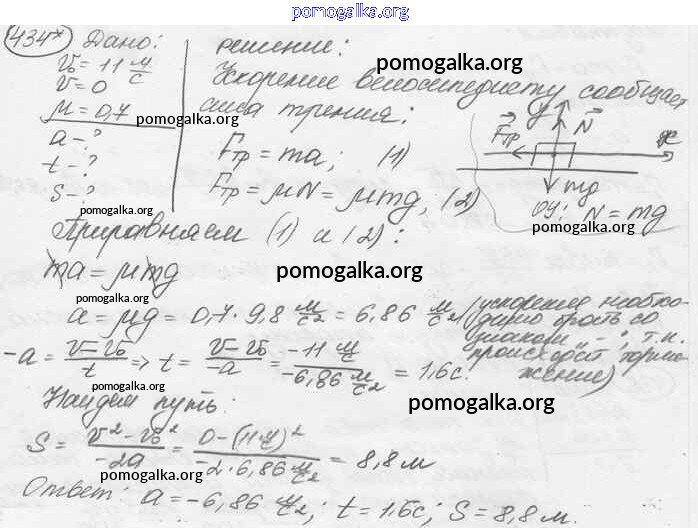 pomogalka.org
434* Дано:
V₀ = 11 м/с
V = 0
μ = 0,7
a - ?
t - ?
S - ?
решение:
Ускорение велосипедисту сообщает
сила трения:
Fтр = ma; (1)
Fтр = μN = μmg; (2)
y
N
Fтр
x
mg
ОУ: N = mg
Приравняем (1) и (2):
ma = μmg
a = μg = 0,7 · 9,8 м/с² = 6,86 м/с² (ускорение необхо-
димо брать со
знаком „-“, т.к.
происходит тормо-
жение)
-a = (V - V₀)/t => t = (V - V₀)/(-a) = (-11 м/с)/(-6,86 м/с²) = 1,6 с.
Найдем путь:
S = (V² - V₀²)/(-2a) = (0 - (11 м/с)²)/(-2 · 6,86 м/с²) = 8,8 м
Ответ: a = -6,86 м/с²; t = 1,6 с; S = 8,8 м.
pomogalka.org
pomogalka.org
pomogalka.org
pomogalka.org
pomogalka.org
pomogalka.org
pomogalka.org
pomogalka.org
pomogalka.org